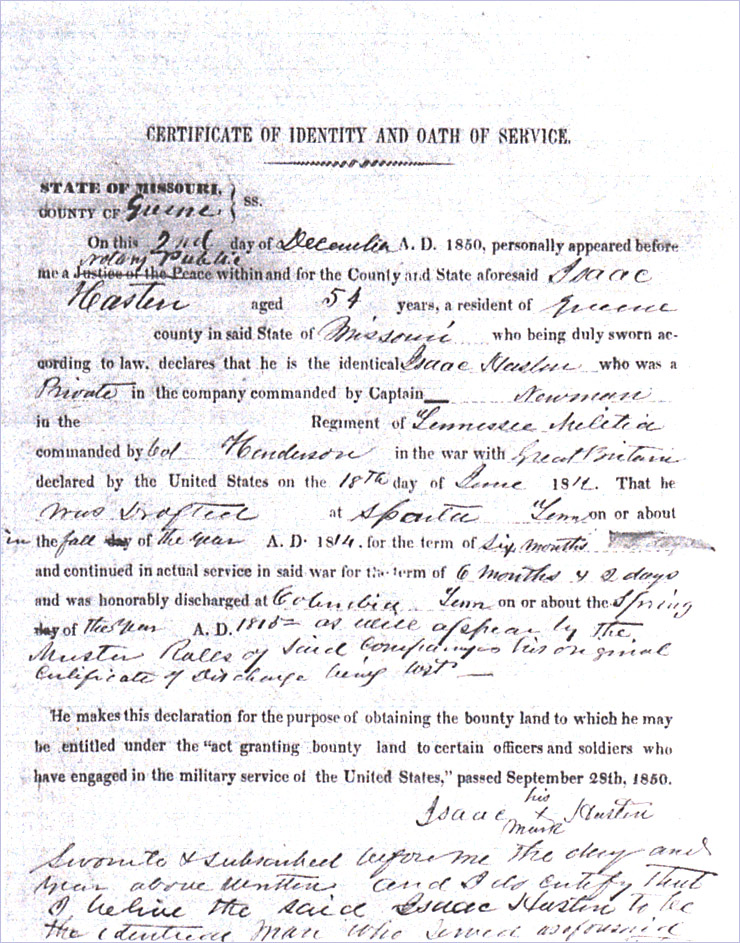 CERTIFICATE OF IDENTITY AND OATH OF SERVICE.
STATE OF MISSOURI,
COUNTY OF Greene. } ss.
On this 2nd day of December A. D. 1850, personally appeared before
Notary Public
me a Justice of the Peace within and for the County and State aforesaid Isaac
Hasten aged 54 years, a resident of Greene
county in said State of Missouri who being duly sworn ac-
cording to law, declares that he is the identical Isaac Hasten who was a
Private in the company commanded by Captain Newman
in the Regiment of Tennessee Militia
commanded by Col Henderson in the war with Great Britain
declared by the United States on the 18th day of June 1812. That he
was Drafted at Sparta Tenn on or about
in the fall day of the year A. D. 1814, for the term of six months
and continued in actual service in said war for the term of 6 months & 2 days
and was honorably discharged at Columbia Tenn on or about the Spring
day of the year A. D. 1815 as will appear by the
Muster Rolls of said Company his original
Certificate of Discharge being lost
He makes this declaration for the purpose of obtaining the bounty land to which he may
be entitled under the "act granting bounty land to certain officers and soldiers who
have engaged in the military service of the United States," passed September 28th, 1850.
his
Isaac x Hasten
mark
Sworn to & subscribed before me the day and
year above written and I do certify that
I believe the said Isaac Hasten to be
the identical man who served as aforesaid